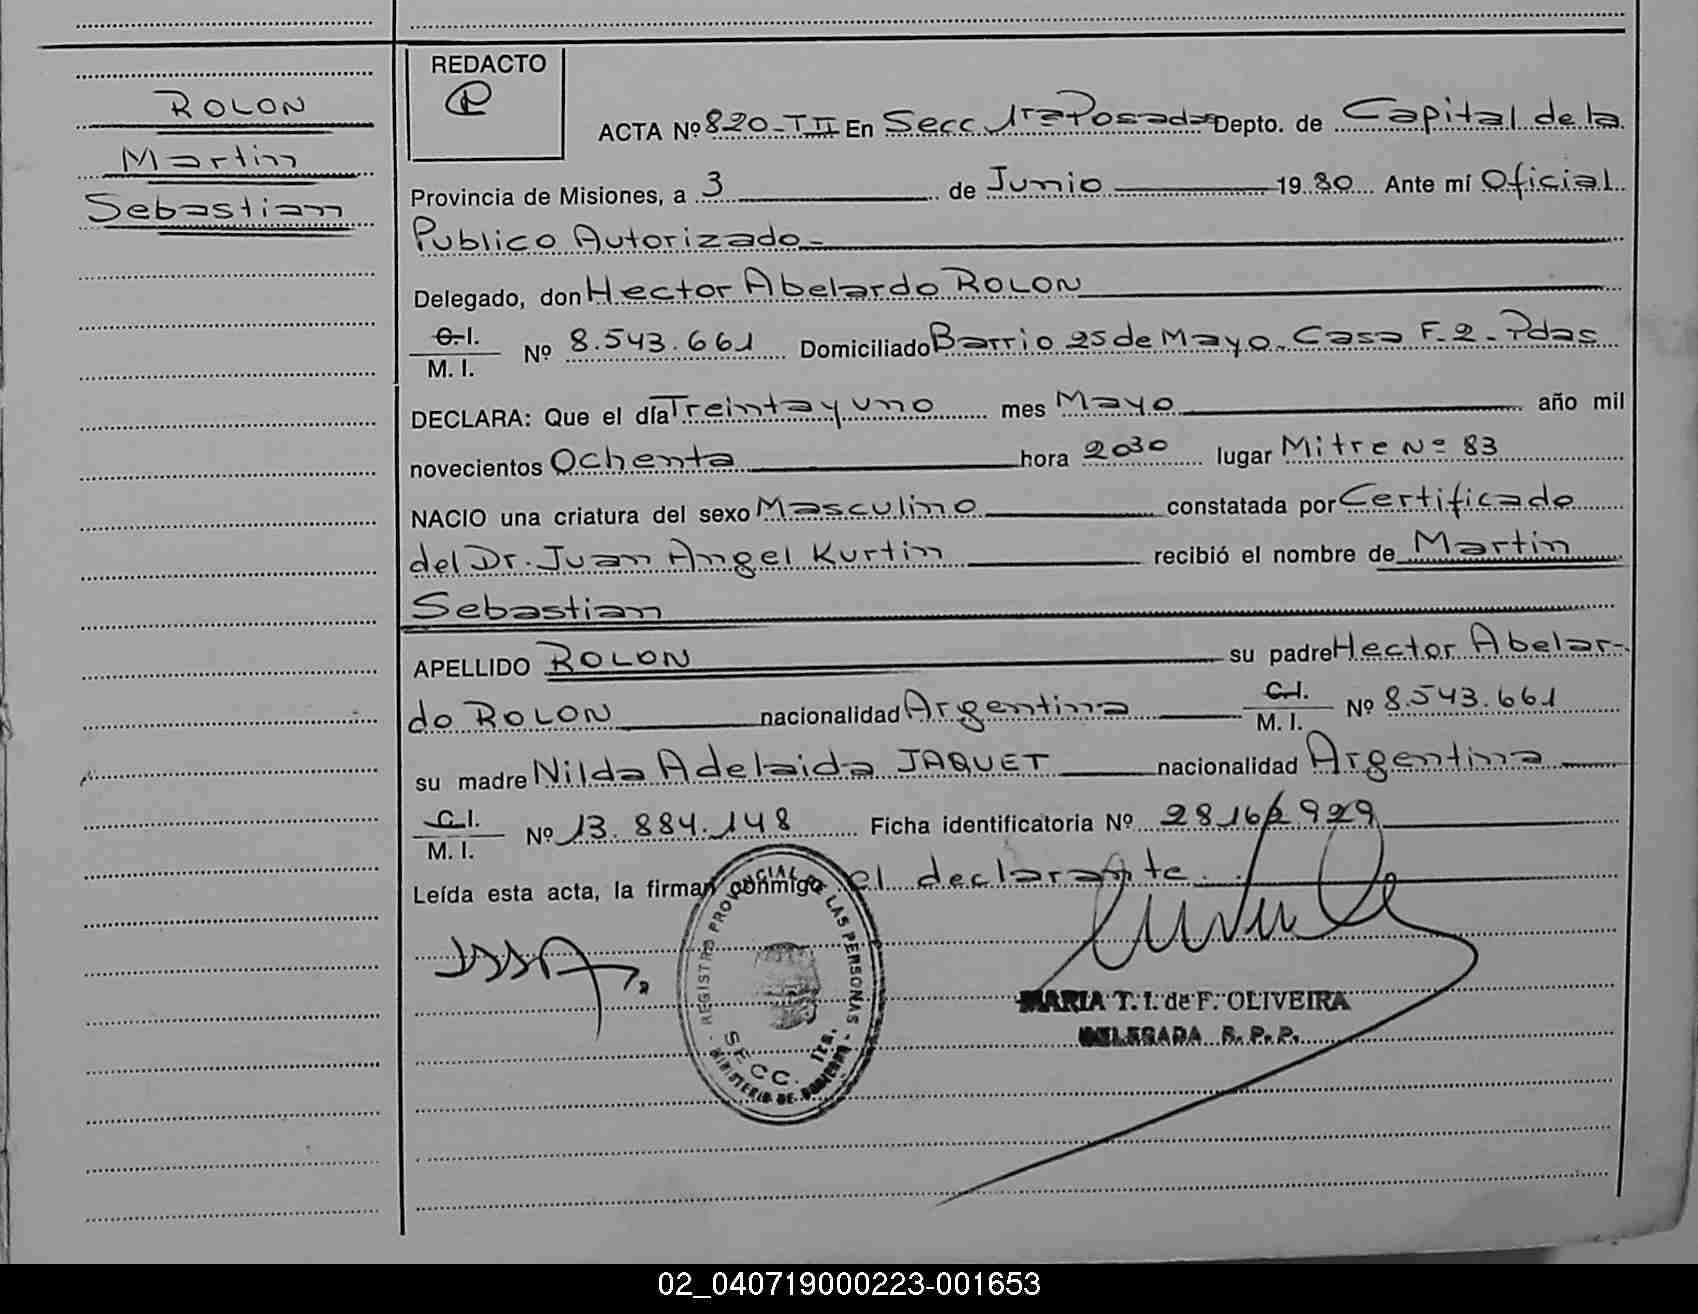 ROLON
Martin
Sebastian
REDACTO
ACTA Nº 820-TII En Secc. 1ra Posadas Depto. de Capital de la
Provincia de Misiones, a 3 de Junio 1980 Ante mí Oficial
Publico Autorizado-
Delegado, don Hector Abelardo ROLON
C.I.
M. I. Nº 8.543.661 Domiciliado Barrio 25 de Mayo. Casa F-2-Pdas
DECLARA: Que el día Treinta y uno mes Mayo año mil
novecientos Ochenta hora 2030 lugar Mitre Nº 83
NACIO una criatura del sexo Masculino constatada por Certificado
del Dr. Juan Angel Kurtin recibió el nombre de Martin
Sebastian
APELLIDO ROLON su padre Hector Abelar-
do ROLON nacionalidad Argentina C.I. M. I. Nº 8.543.661
su madre Nilda Adelaida JAQUET nacionalidad Argentina
C.I.
M. I. Nº 13.884.148 Ficha identificatoria Nº 28162929
Leída esta acta, la firman conmigo el declarante.
REGISTRO PROVINCIAL DE LAS PERSONAS
SECC. 1ra.
MINISTERIO DE GOBIERNO
MARIA T. I. de F. OLIVEIRA
DELEGADA R. P. P.
02_040719000223-001653